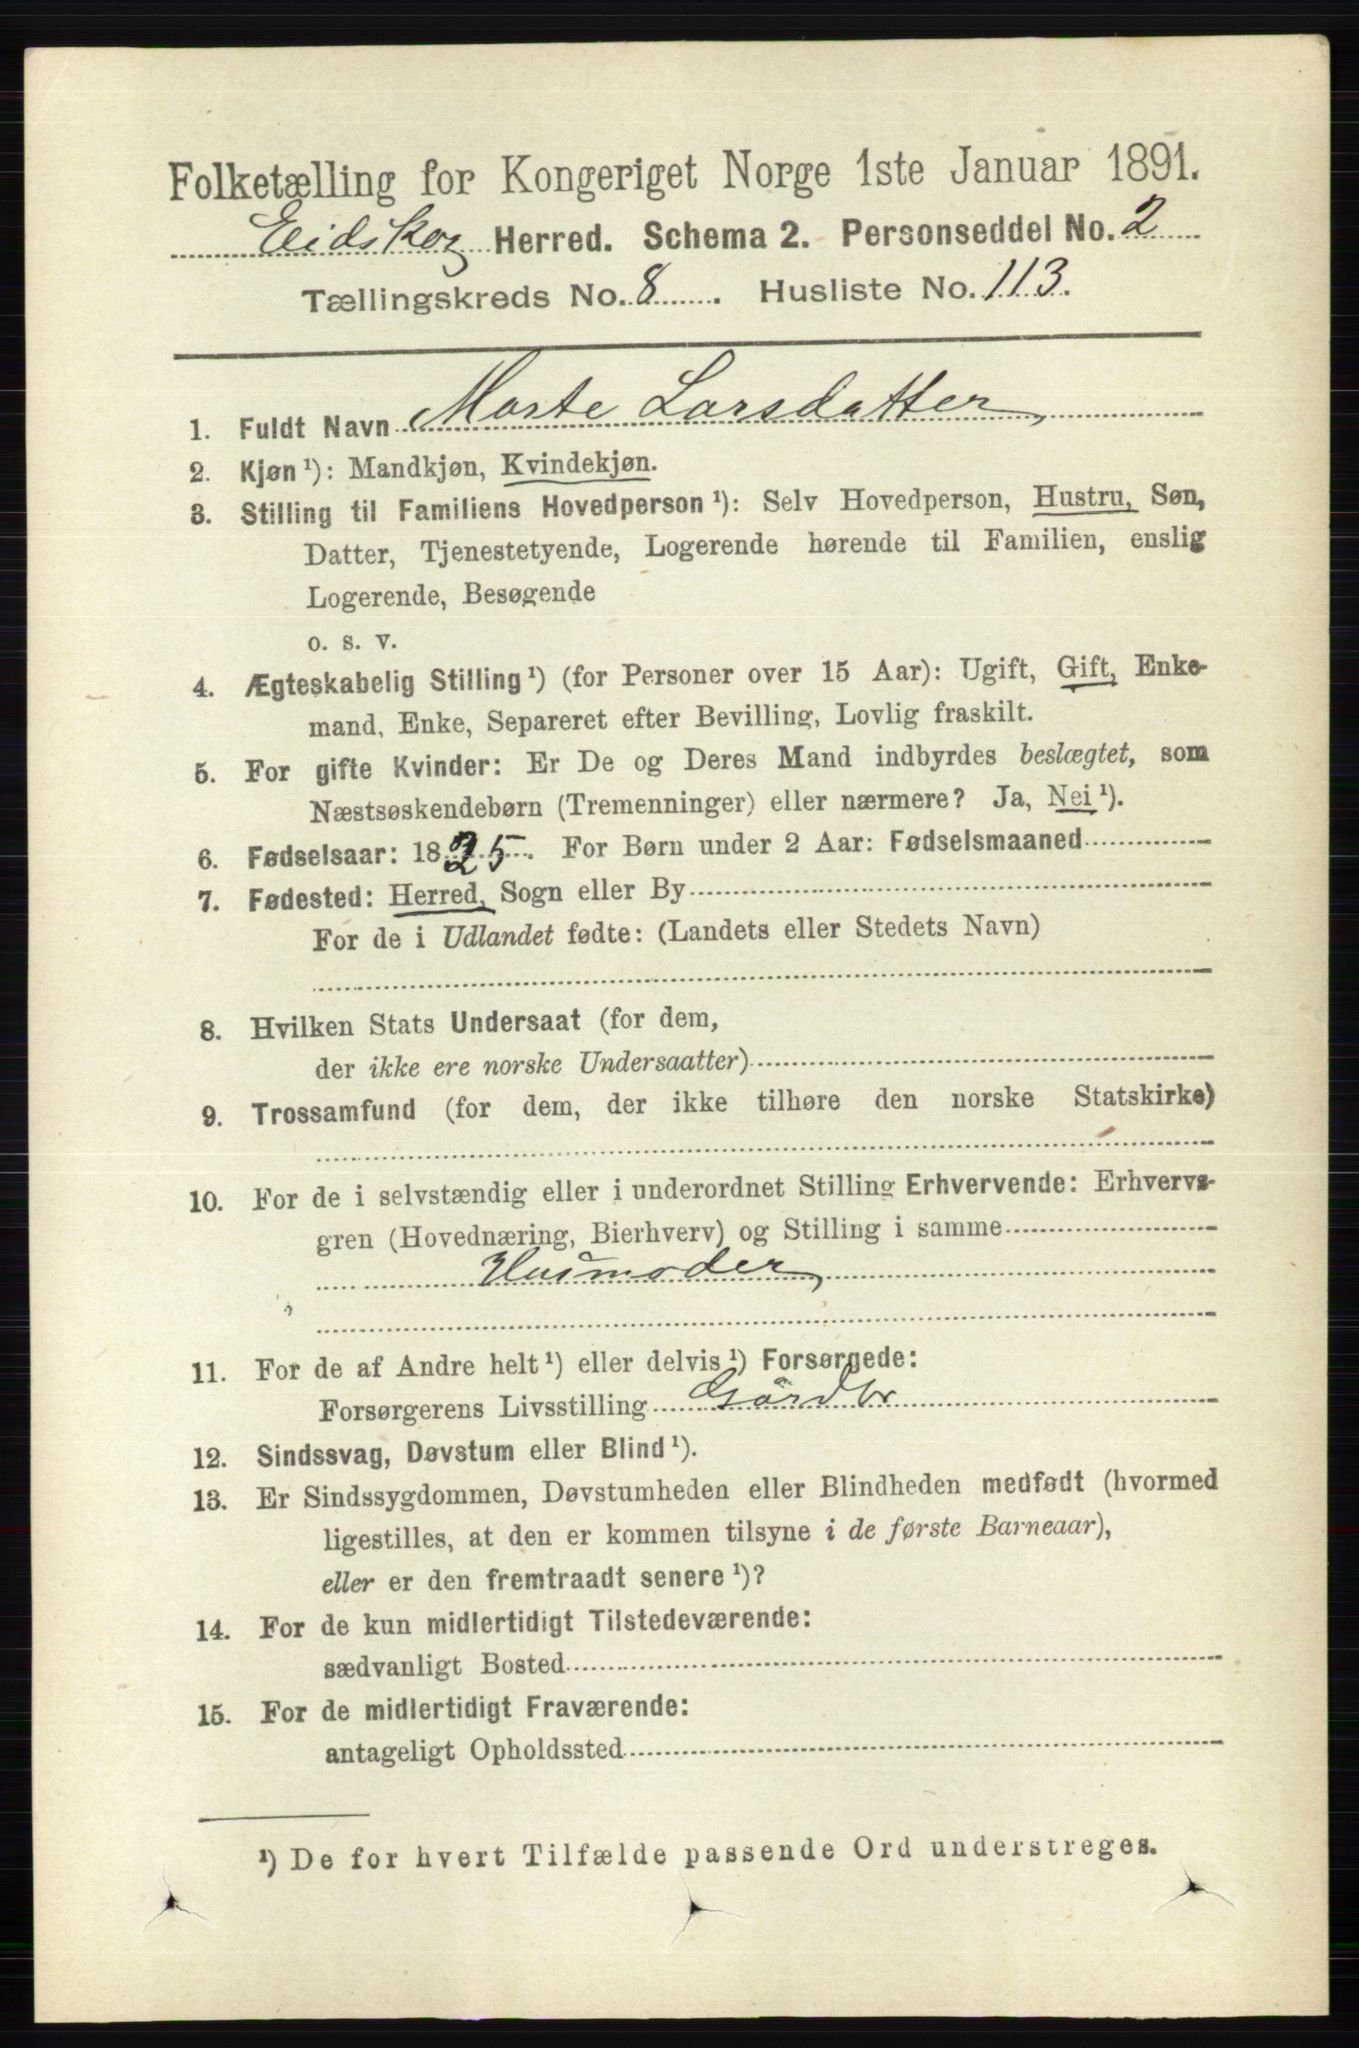 Folketælling for Kongeriget Norge 1ste Januar 1891.
Eidskog Herred. Schema 2. Personseddel No. 2
Tællingskreds No. 8. Husliste No. 113.
1. Fuldt Navn Marte Larsdatter
2. Kjøn ¹): Mandkjøn, Kvindekjøn.
3. Stilling til Familiens Hovedperson ¹): Selv Hovedperson, Hustru, Søn,
Datter, Tjenestetyende, Logerende hørende til Familien, enslig
Logerende, Besøgende
o. s. v.
4. Ægteskabelig Stilling ¹) (for Personer over 15 Aar): Ugift, Gift, Enke-
mand, Enke, Separeret efter Bevilling, Lovlig fraskilt.
5. For gifte Kvinder: Er De og Deres Mand indbyrdes beslægtet, som
Næstsøskendebørn (Tremenninger) eller nærmere? Ja, Nei ¹).
6. Fødselsaar: 1825. For Børn under 2 Aar: Fødselsmaaned
7. Fødested: Herred, Sogn eller By
For de i Udlandet fødte: (Landets eller Stedets Navn)
8. Hvilken Stats Undersaat (for dem,
der ikke ere norske Undersaatter)
9. Trossamfund (for dem, der ikke tilhøre den norske Statskirke)
10. For de i selvstændig eller i underordnet Stilling Erhvervende: Erhvervs-
gren (Hovednæring, Bierhverv) og Stilling i samme
Husmoder
11. For de af Andre helt ¹) eller delvis ¹) Forsørgede:
Forsørgerens Livsstilling Gårdbr
12. Sindssvag, Døvstum eller Blind ¹).
13. Er Sindssygdommen, Døvstumheden eller Blindheden medfødt (hvormed
ligestilles, at den er kommen tilsyne i de første Barneaar),
eller er den fremtraadt senere ¹)?
14. For de kun midlertidigt Tilstedeværende:
sædvanligt Bosted
15. For de midlertidigt Fraværende:
antageligt Opholdssted
¹) De for hvert Tilfælde passende Ord understreges.